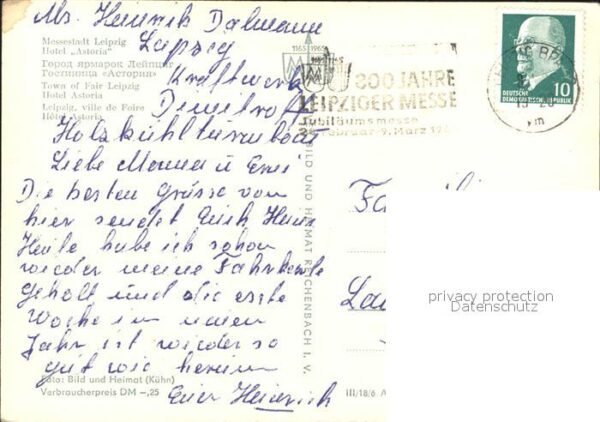 Abs. Heinrich Dalmann
Leipzig
Kraftwerk
Dimitroff
Holzkühlturmbau
Messestadt Leipzig
Hotel „Astoria"
Город ярмарок Лейпциг
Гостиница «Астория»
Town of Fair Leipzig
Hotel Astoria
Leipzig, ville de Foire
Hôtel Astoria
1165 1965
800 JAHRE
LEIPZIGER MESSE
Jubiläumsmesse
Februar-9. März
DEUTSCHE
DEMOKRATISCHE REPUBLIK
10
Liebe Mama u
Die besten Grüsse von
hier sendet Euch Heini
Heute habe ich schon
wieder meine Fahrkarte
geholt und die erste
Woche im neuen
Jahr ist wieder so
gut wie herum
Euer Heinrich
BILD UND HEIMAT REICHENBACH I. V.
Foto: Bild und Heimat (Kühn)
Verbraucherpreis DM –,25
III/18/6 A
privacy protection
Datenschutz